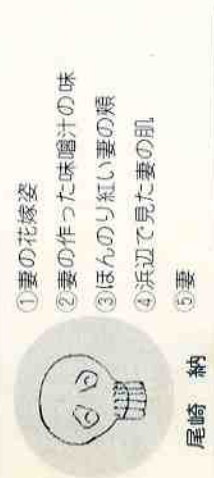 ①妻の花嫁姿
②妻の作った味噌汁の味
③ほんのり紅い妻の頬
④浜辺で見た妻の肌
⑤妻
尾崎 納